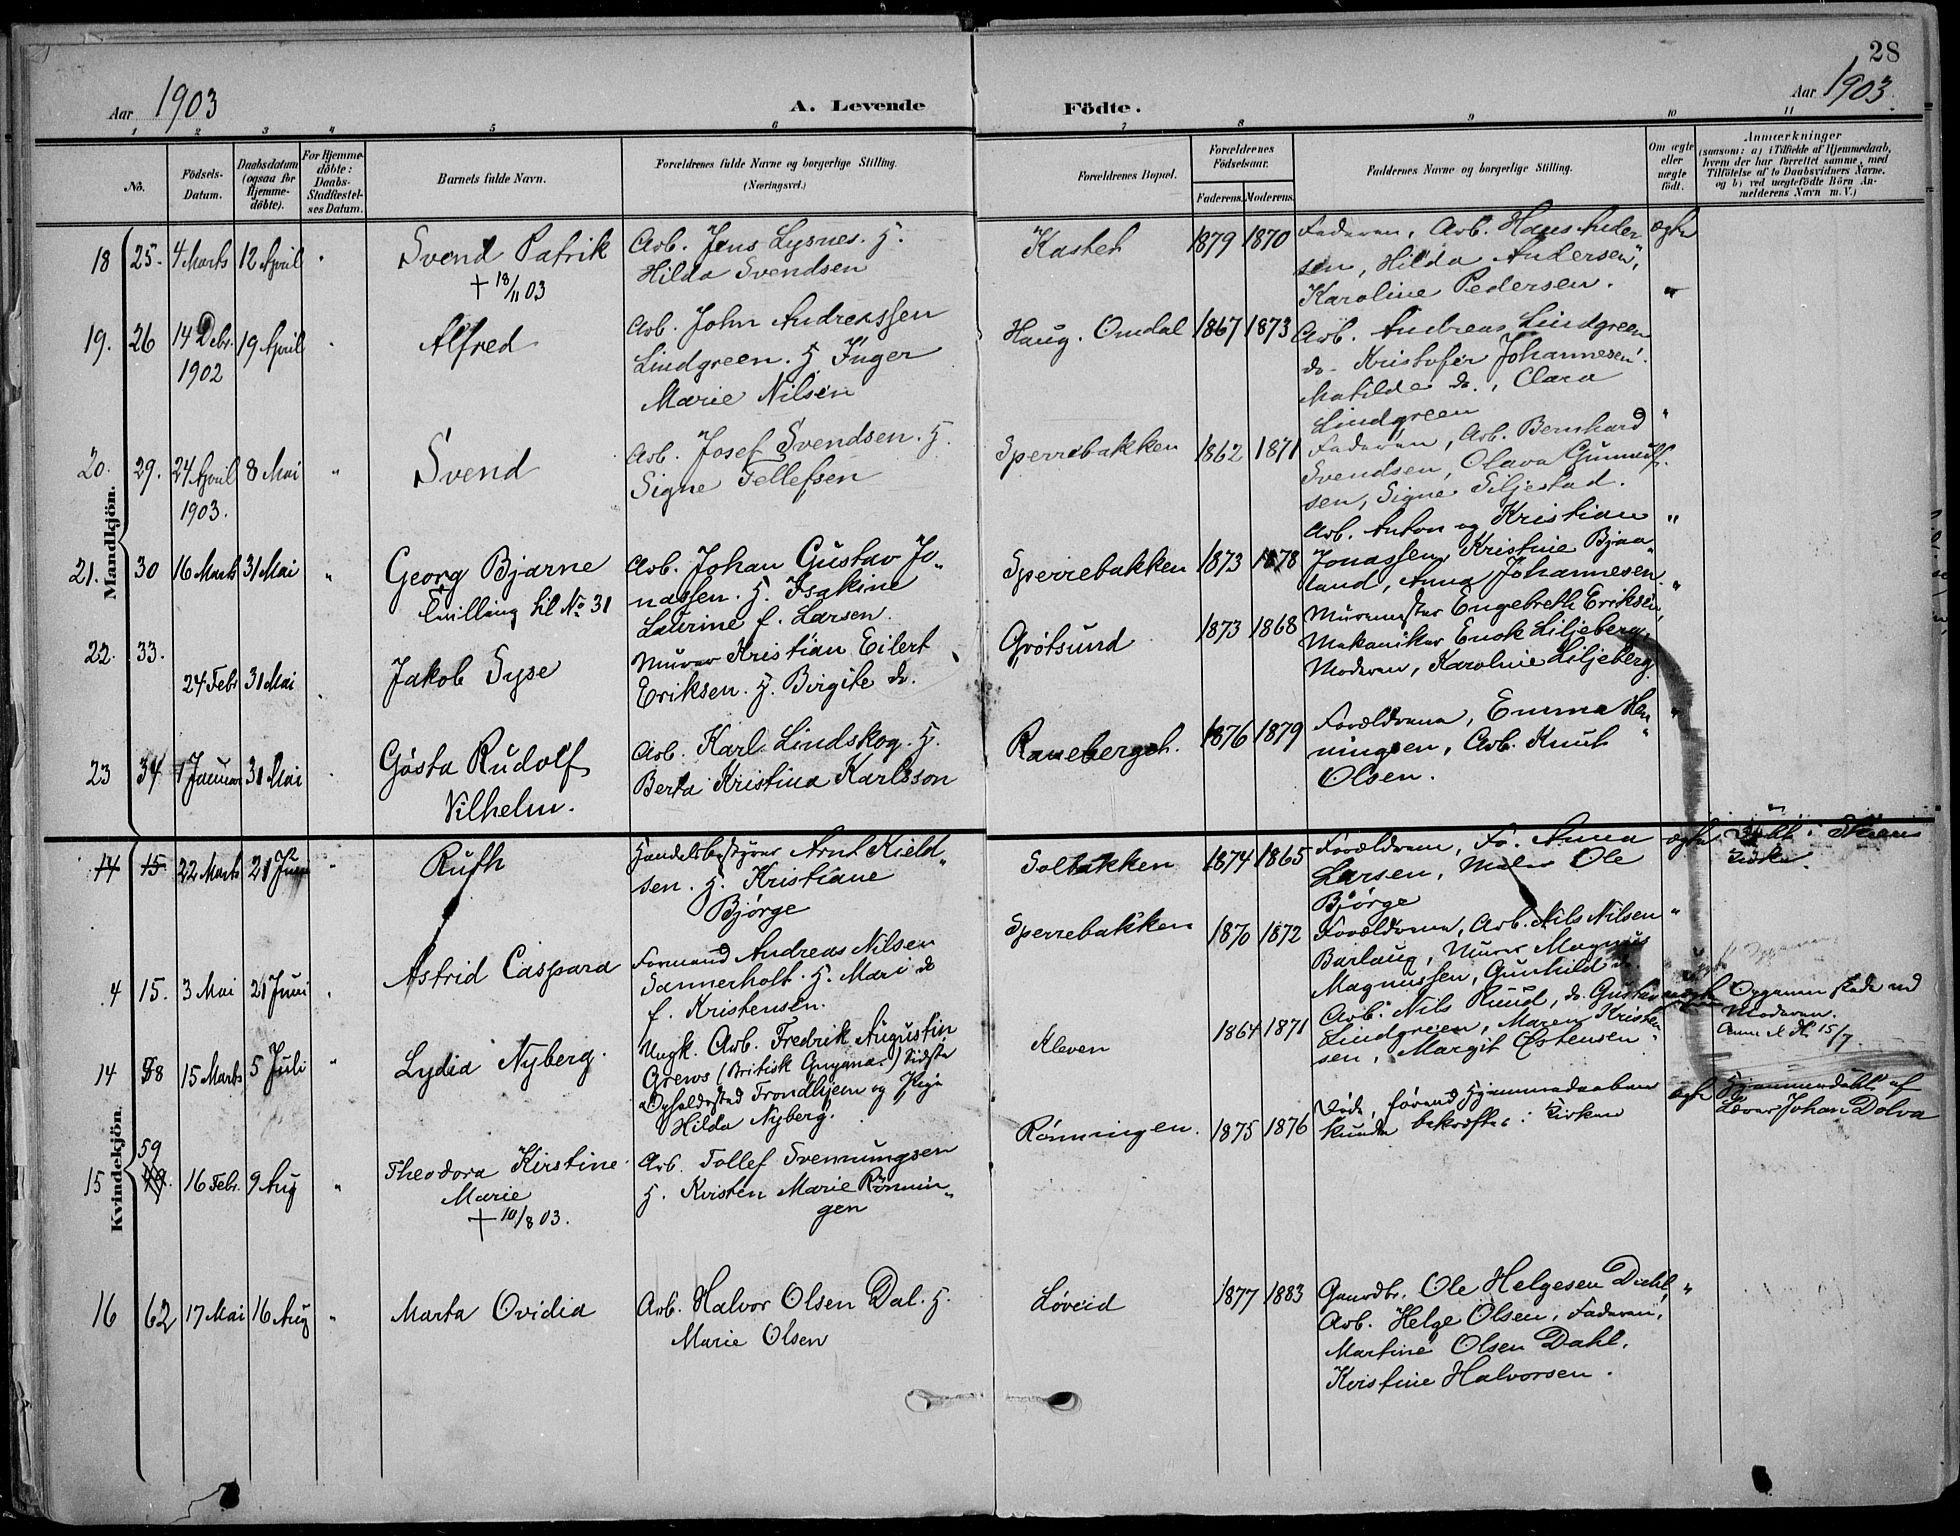 28
Aar 1903
A. Levende
Födte.
Aar 1903.
1 2 3 4 5 6 7 8 9 10 11
No.
Födsels-
Datum.
Daabsdatum
(ogsaa for
Hjemme-
döbte).
For Hjemme-
döbte:
Daabs-
Stadfæstel-
ses Datum.
Barnets fulde Navn.
Forældrenes fulde Navne og borgerlige Stilling.
(Næringsvei.)
Forældrenes Bopæl.
Forældrenes
Födselsaar.
Faderens. Moderens.
Faddernes Navne og borgerlige Stilling.
Om ægte
eller
uægte
födt.
Anmærkninger
(saasom: a) i Tilfælde af Hjemmedaab,
hvem der har forrettet samme, med
Tilföielse af to Daabsvidners Navne,
og b) ved uægtefödte Börn An-
melderens Navn m. V.)
Mandkjön.
18 25. 4 Marts 12 April
Svend Patrik
+ 18/11 03
Arb. Jens Lysnes. H.
Hilda Svendsen
Kastet 1879 1870
Faderen, Arb. Hans Ander-
sen, Hilda Andersen,
Karoline Pedersen.
ægte
19. 26 14 Debr. 19 April
1902
Alfred
Arb. John Andreassen
Lindgreen. H Inger
Marie Nilsen
Haug. Omdal 1867 1873
Arb. Andreas Lindgreen
do. Kristofer Johannesen.
Matilde do., Clara
Lindgreen
"
20. 29. 24 April 8 Mai "
1903.
Svend
Arb. Josef Svendsen. H.
Signe Tellefsen
Sperrebakken 1862 1871
Faderen, Arb. Bernhard
Svendsen, Olava Gunnulf-
sen, Signe Siljestad.
"
21. 30 16 Marts 31 Mai "
Georg Bjarne
Tvilling til No 31
Arb. Johan Gustav Jo-
nassen. H. Isakine
Laurine f. Larsen.
Sperrebakken 1873 1878
Arb. Anton og Kristian
Jonassen, Kristine Bjaa-
land, Anna Johannesen.
"
22. 33. 24 Febr 31 Mai
Jakob Syse
Murer Kristian Eilert
Eriksen. H. Birgite do.
Grötsund 1873 1868
Murmester Engebreth Eriksen,
Mekaniker Enok Liljeberg,
Moderen, Karoline Liljeberg.
"
23 34 1 Januar 31 Mai
Gösta Rudolf
Vilhelm.
Arb. Karl Lindskog. H.
Berta Kristina Karlsson
Raneberget. 1876 1879
Forældrene, Emma Hen-
ningsen, Arb. Knut
Olsen.
"
Kvindekjön
14 15 22 Marts 21 Juni "
Ruth
Handelsbestyrer Arnt Kield-
sen. H. Kristiane
Bjørge
Solbakken 1874 1865
Forældrene, Fr. Anna
Larsen, Maler Ole
Bjørge
ægte
Døbt i Skiens
Kirke
4 15. 3 Mai 21 Juni "
Astrid Caspara
Formand Andreas Nilsen
Sannerholt. H. Mari do
f. Kristensen.
Sperrebakken 1870 1872
Forældrene, Arb. Nils Nilsen
Barlaug, Murer Magnus
Magnussen, Gunhild do.
"
14 58 15 Marts 5 Juli "
Lydia Nyberg.
Ungk. Arb. Fredrik Augustin
Grews (Britisk Guyana.) Sidste
Opholdssted Trondhjem og Pige
Hilda Nyberg.
Kleven 1864 1871
Arb. Nils Ruud, do. Gustav
Lindgreen, Maren Kristen-
sen, Margit Østensen
uægte
Opgaven skede ved
Moderen.
Anm. 15/7.
15 59 16 Febr. 9 Aug "
Theodora Kirstine
Marie
+ 10/8 03.
Arb. Tollef Svennungsen
H. Kristen Marie Rønnin-
gen
Rønningen. 1875 1876
Døde, førend Hjemmedaaben
kunde bekræftes i Kirken
ægte
Hjemmedøbt af
Lærer Johan Dolva
16 62 17 Mai 16 Aug "
Marta Ovidia
Arb. Halvor Olsen Dal. H.
Marie Olsen
Løveid 1877 1883
Gaardbr. Ole Helgesen Dahl,
Arb. Helge Olsen, Faderen,
Martine Olsen Dahl,
Kristine Halvorsen.
"